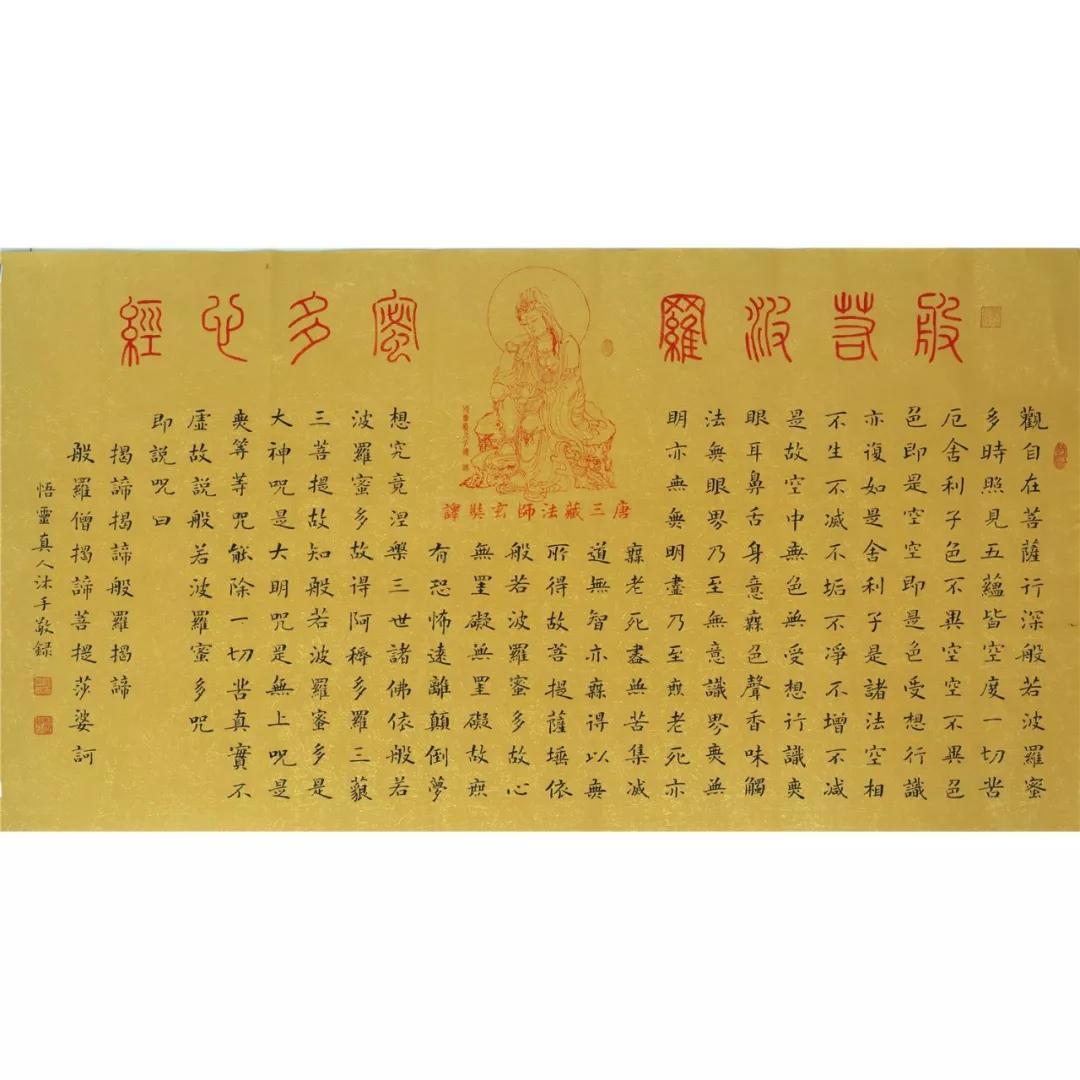 般若波羅蜜多心經
唐三藏法師玄奘譯
觀自在菩薩行深般若波羅蜜
多時照見五蘊皆空度一切苦
厄舍利子色不異空空不異色
色即是空空即是色受想行識
亦復如是舍利子是諸法空相
不生不滅不垢不淨不增不減
是故空中無色無受想行識無
眼耳鼻舌身意無色聲香味觸
法無眼界乃至無意識界無無
明亦無無明盡乃至無老死亦
無老死盡無苦集滅
道無智亦無得以無
所得故菩提薩埵依
般若波羅蜜多故心
無罣礙無罣礙故無
有恐怖遠離顛倒夢
想究竟涅槃三世諸佛依般若
波羅蜜多故得阿耨多羅三藐
三菩提故知般若波羅蜜多是
大神咒是大明咒是無上咒是
無等等咒能除一切苦真實不
虛故説般若波羅蜜多咒
即説咒曰
揭諦揭諦般羅揭諦
般羅僧揭諦菩提莎婆訶
悟靈真人沐手敬録